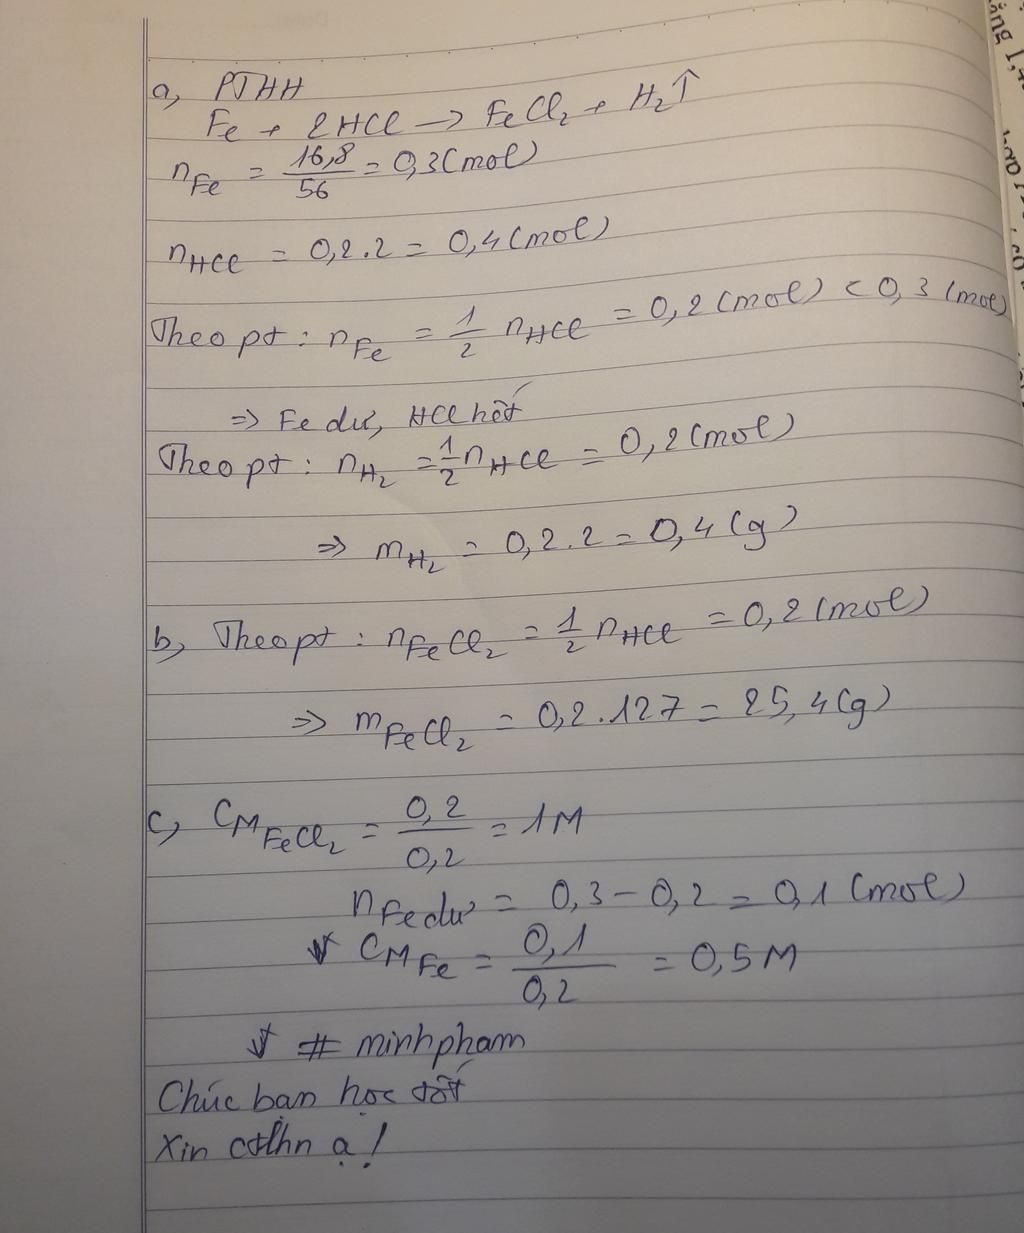 a, PTHH
Fe + 2HCl -> FeCl2 + H2↑
nFe = 16,8/56 = 0,3 (mol)
nHCl = 0,2.2 = 0,4 (mol)
Theo pt: nFe = 1/2 nHCl = 0,2 (mol) < 0,3 (mol)
=> Fe dư, HCl hết
Theo pt: nH2 = 1/2 nHCl = 0,2 (mol)
=> mH2 = 0,2.2 = 0,4 (g)
b, Theo pt: nFeCl2 = 1/2 nHCl = 0,2 (mol)
=> mFeCl2 = 0,2.127 = 25,4 (g)
c, CM FeCl2 = 0,2/0,2 = 1M
nFe dư = 0,3 - 0,2 = 0,1 (mol)
CM Fe = 0,1/0,2 = 0,5M
# minhpham
Chúc bạn học tốt
Xin ctlhn ạ!